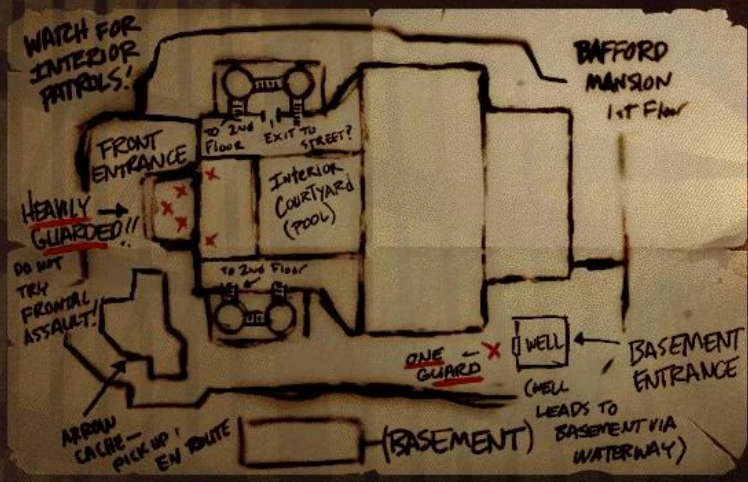 WATCH FOR
INTERIOR
PATROLS!
BAFFORD
MANSION
1ST Floor
TO 2nd
Floor
EXIT TO
STREET?
FRONT
ENTRANCE
INTERIOR
COURTYARD
(POOL)
HEAVILY
GUARDED!!
DO NOT
TRY
FRONTAL
ASSAULT!
TO 2nd Floor
ONE
GUARD
WELL
BASEMENT
ENTRANCE
(WELL
LEADS TO
BASEMENT VIA
WATERWAY)
ARROW
CACHE—
PICK UP
EN ROUTE
(BASEMENT)